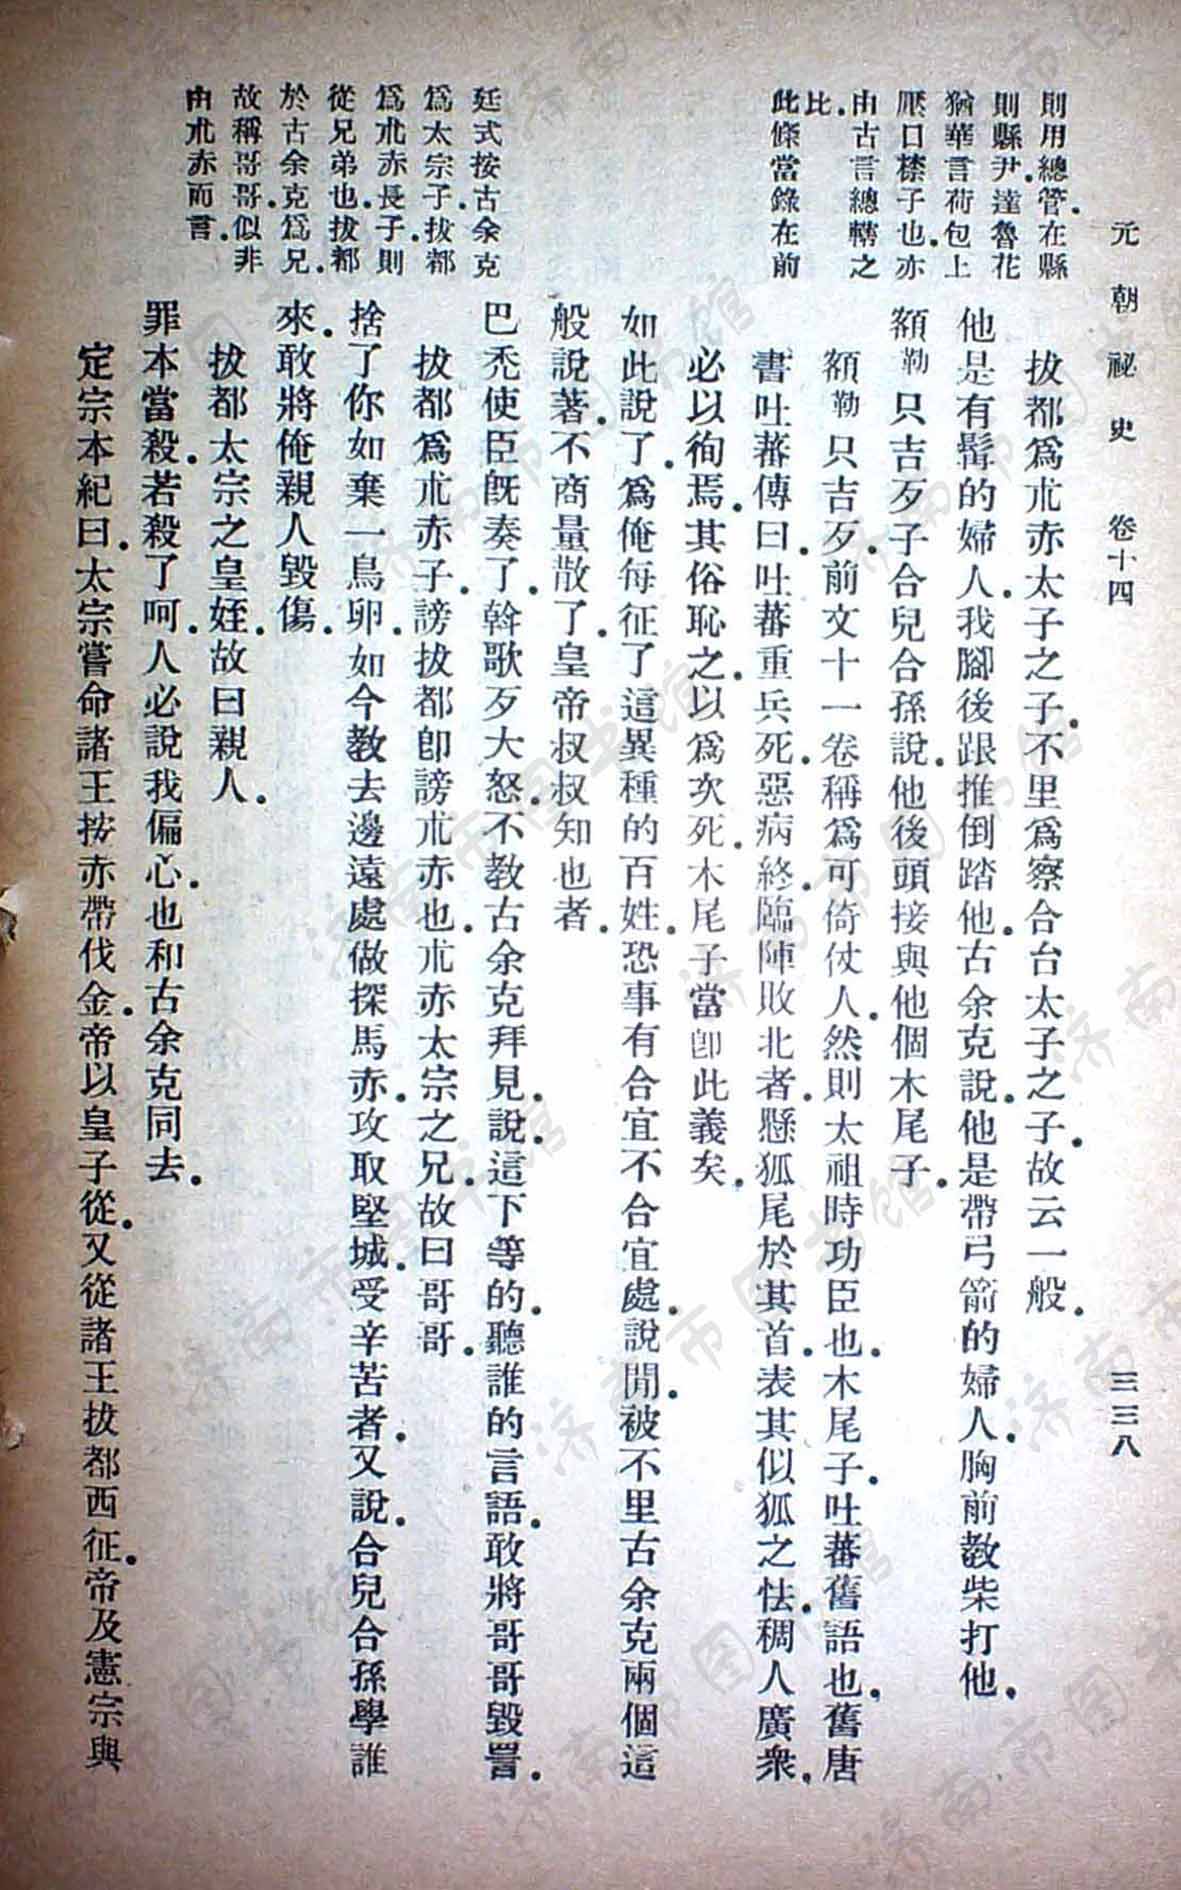 元朝祕史 卷十四 三三八
則用總管在縣
則縣尹達魯花
猶華言荷包上
壓口襟子也亦
由古言總轄之
比
此條當錄在前
廷式按古余克
爲太宗子拔都
爲朮赤長子則
從兄弟也拔都
於古余克爲兄
故稱哥哥似非
由朮赤而言
拔都爲朮赤太子之子不里爲察合台太子之子故云一般
他是有髯的婦人我腳後跟推倒踏他古余克說他是帶弓箭的婦人胸前教柴打他
額勒只吉歹子合兒合孫說他後頭接與他個木尾子
額勒只吉歹前文十一卷稱爲可倚仗人然則太祖時功臣也木尾子吐蕃舊語也舊唐
書吐蕃傳曰吐蕃重兵死惡病終臨陣敗北者懸狐尾於其首表其似狐之怯稠人廣衆
必以徇焉其俗恥之以爲次死木尾子當卽此義矣
如此說了爲俺每征了這異種的百姓恐事有合宜不合宜處說閒被不里古余克兩個這
般說著不商量散了皇帝叔叔知也者
巴禿使臣旣奏了斡歌歹大怒不教古余克拜見說這下等的聽誰的言語敢將哥哥毀詈
拔都爲朮赤子謗拔都卽謗朮赤也朮赤太宗之兄故曰哥哥
捨了你如棄一鳥卵如今教去邊遠處做探馬赤攻取堅城受辛苦者又說合兒合孫學誰
來敢將俺親人毀傷
拔都太宗之皇姪故曰親人
罪本當殺若殺了呵人必說我偏心也和古余克同去
定宗本紀曰太宗嘗命諸王按赤帶伐金帝以皇子從又從諸王拔都西征帝及憲宗與